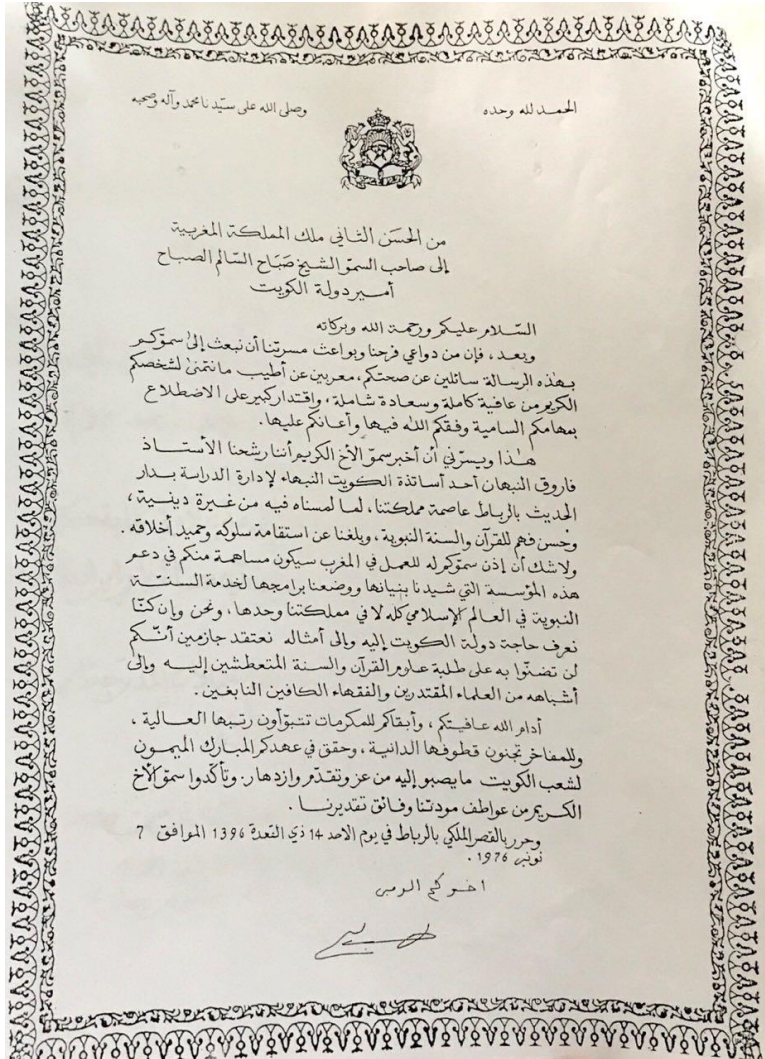 الحمد لله وحده
وصلى الله على سيّدنا محمد وآله وصحبه
من الحسَن الثاني ملك المملكة المغربية
إلى صاحب السموّ الشيخ صَبَاح السَّالم الصباح
أمير دولة الكويت
السّلام عليكم ورحمة الله وبركاته
وبعد ، فإن من دواعي فرحنا وبواعث مسرتنا أن نبعث إلى سموّكم
بهذه الرسالة سائلين عن صحتكم، معربين عن أطيب ما نتمنى لشخصكم
الكريم من عافية كاملة وسعادة شاملة ، واقتدار كبير على الاضطلاع
بمهامكم السامية وفقكم الله فيها وأعانكم عليها.
هذا ويسرّني أن أخبر سموّ الأخ الكريم أننا رشحنا الأستاذ
فاروق النبهان أحد أساتذة الكويت النبهاء لإدارة الدراسة بدار
الحديث بالرباط عاصمة مملكتنا، لما لمسناه فيه من غيرة دينية ،
وحُسن فهم للقرآن والسنة النبوية ، وبلغنا عن استقامة سلوكه وحميد أخلاقه .
ولا شك أن إذن سموّكم له للعمل في المغرب سيكون مساهمة منكم في دعم
هذه المؤسسة التي شيدنا بنيانها ووضعنا برامجها لخدمة السنّة
النبوية في العالم الإسلامي كله لا في مملكتنا وحدها ، ونحن وإن كنّا
نعرف حاجة دولة الكويت إليه وإلى أمثاله نعتقد جازمين أنّكم
لن تضنّوا به على طلبة علوم القرآن والسنة المتعطشين إليه وإلى
أشباهه من العلماء المقتدرين والفقهاء الكافين النابغين .
أدام الله عافيتكم ، وأبقاكم للمكرمات تتبوّأون رتبها العالية ،
وللمفاخر تجنون قطوفها الدانية ، وحقق في عهدكم المبارك الميمون
لشعب الكويت ما يصبو إليه من عز وتقدّم وازدهار. وتأكّدوا سموّ الأخ
الكريم من عواطف مودتنا وفائق تقديرنا .
وحرر بالقصر الملكي بالرباط في يوم الاحد 14 ذي القعدة 1396 الموافق 7
نونبر 1976 .
اخوكم الوفي